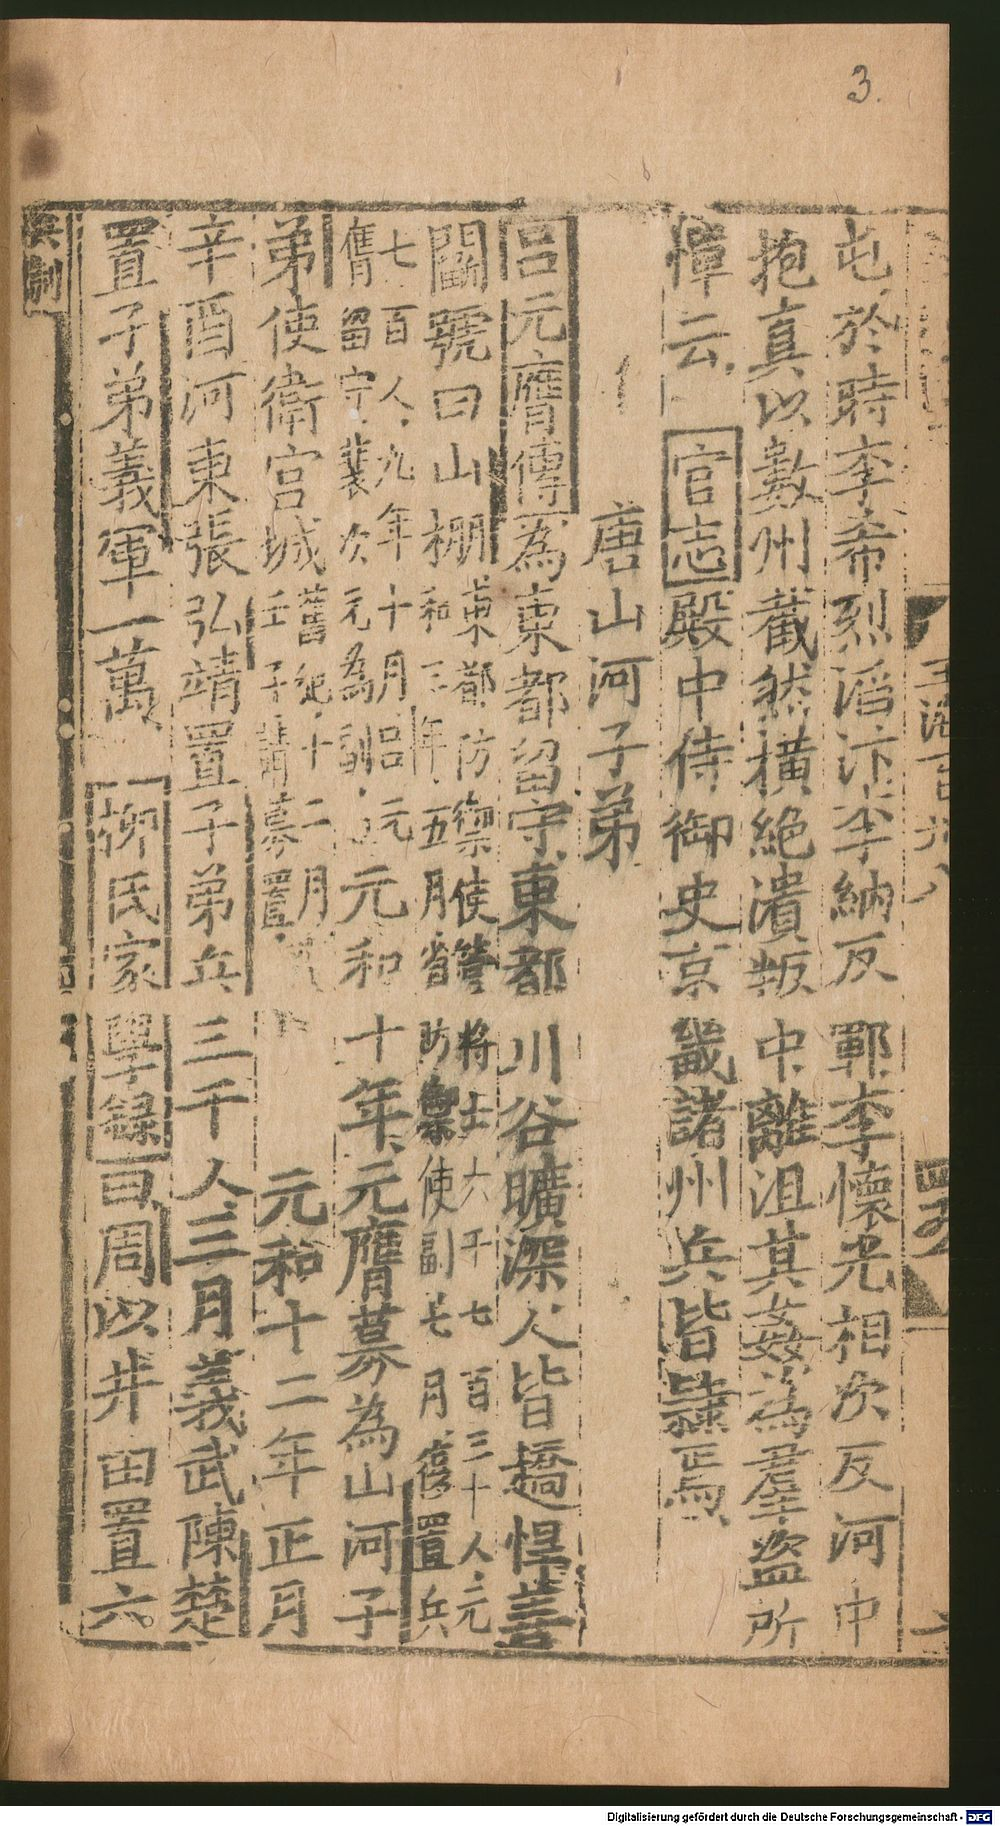 3.
玉海百卅八
屯於時李希烈滔汴李納反鄆李懷光相次反河中
抱真以數州截然橫絕潰叛中離沮其姦為羣盜所
憚云 官志殿中侍御史京畿諸州兵皆隸焉
唐山河子弟
呂元膺傳為東都留守東都川谷曠深人皆趫悍善
鬬號曰山棚東都防禦使管將士六千七百三十人元
和三年五月省防禦使副七月復置舊兵
七百人九年十月呂元
膺留守裴次元為副元和十年元膺募為山河子
弟使衛宮城舊紀十二月
壬子請募置元和十二年正月
辛酉河東張弘靖置子弟兵三千人三月義武陳楚
置子弟義軍一萬 柳氏家學錄曰周以井田置六
兵制
Digitalisierung gefördert durch die Deutsche Forschungsgemeinschaft - DFG